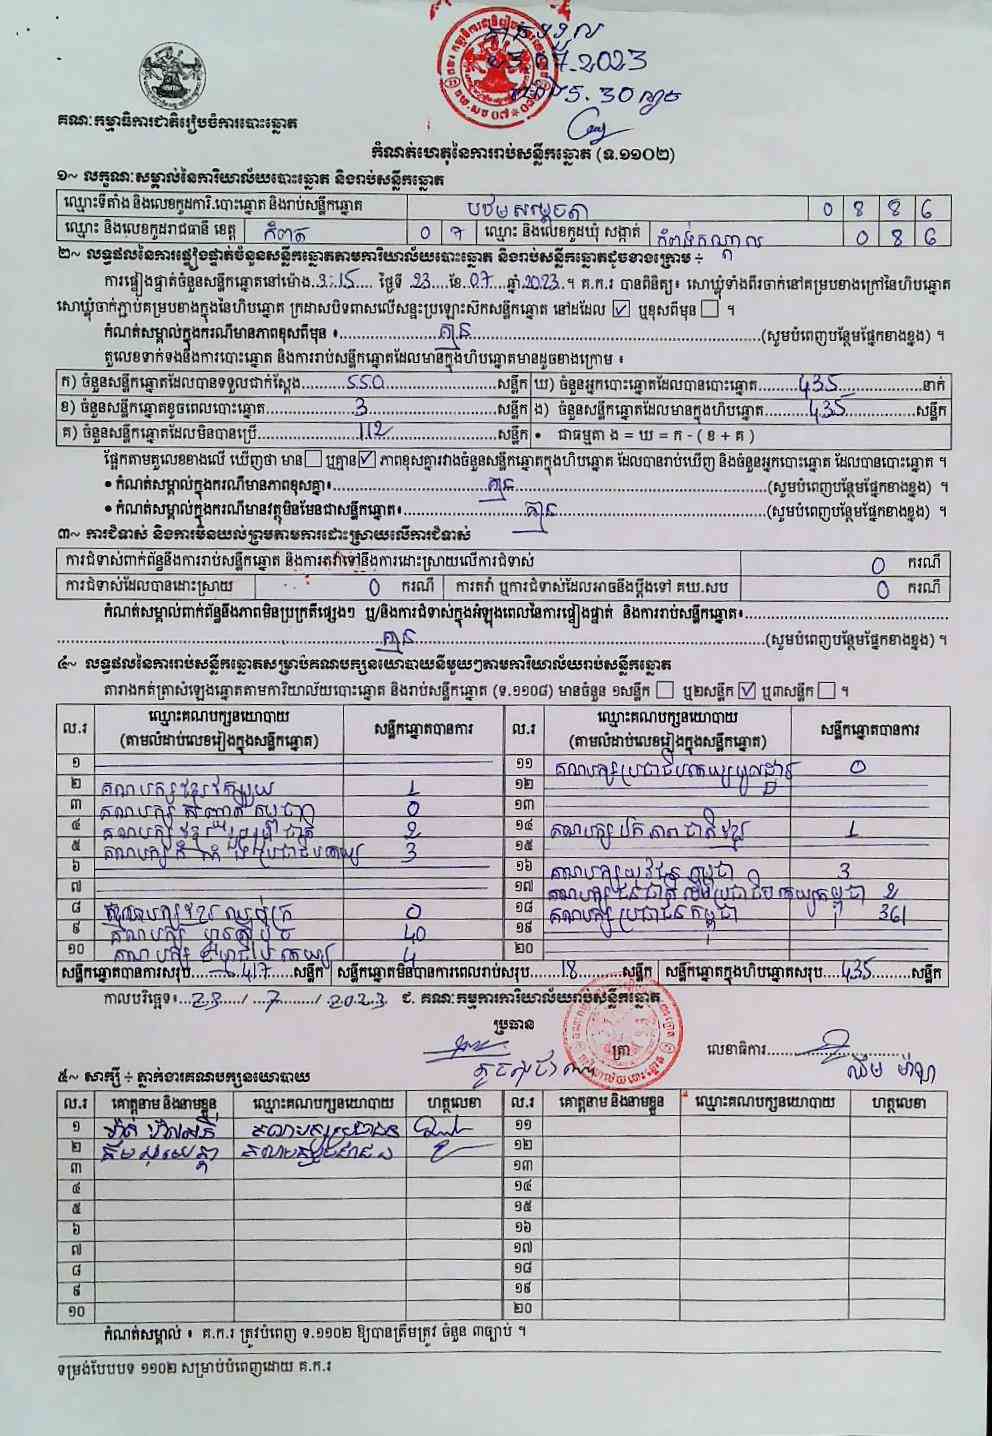 23.07.2023
5.30
គណៈកម្មាធិការជាតិរៀបចំការបោះឆ្នោត
កំណត់ហេតុនៃការរាប់សន្លឹកឆ្នោត (ទ.១១០២)
១~ លក្ខណៈសម្គាល់នៃការិយាល័យបោះឆ្នោត និងរាប់សន្លឹកឆ្នោត
ឈ្មោះទីតាំង និងលេខកូដការិ.បោះឆ្នោត និងរាប់សន្លឹកឆ្នោត 0 8 8 6
ឈ្មោះ និងលេខកូដរាជធានី ខេត្ត កំពត 0 7 ឈ្មោះ និងលេខកូដឃុំ សង្កាត់ កំពង់កណ្តាល 0 8 6
២~ លទ្ធផលនៃការផ្ទៀងផ្ទាត់ចំនួនសន្លឹកឆ្នោតតាមការិយាល័យបោះឆ្នោត និងរាប់សន្លឹកឆ្នោតដូចខាងក្រោម ÷
ការផ្ទៀងផ្ទាត់ចំនួនសន្លឹកឆ្នោតនៅម៉ោង 3:15 ថ្ងៃទី 23 ខែ 07 ឆ្នាំ 2023 ។ គ.ក.រ បានពិនិត្យ៖ សោឃ្លុំទាំងពីរចាក់នៅគម្របខាងក្រៅនៃហិបឆ្នោត
សោឃ្លុំចាក់ភ្ជាប់គម្របខាងក្នុងនៃហិបឆ្នោត ក្រដាសបិទពាសលើសន្ទះប្រឡោះស៊កសន្លឹកឆ្នោត នៅដដែល ☑ ឬខុសពីមុន ☐ ។
កំណត់សម្គាល់ក្នុងករណីមានភាពខុសពីមុន ៖ គ្មាន (សូមបំពេញបន្ថែមផ្នែកខាងខ្នង) ។
តួលេខទាក់ទងនឹងការបោះឆ្នោត និងការរាប់សន្លឹកឆ្នោតដែលមានក្នុងហិបឆ្នោតមានដូចខាងក្រោម ៖
ក) ចំនួនសន្លឹកឆ្នោតដែលបានទទួលជាក់ស្តែង 550 សន្លឹក ឃ) ចំនួនអ្នកបោះឆ្នោតដែលបានបោះឆ្នោត 435 នាក់
ខ) ចំនួនសន្លឹកឆ្នោតខូចពេលបោះឆ្នោត 3 សន្លឹក ង) ចំនួនសន្លឹកឆ្នោតដែលមានក្នុងហិបឆ្នោត 435 សន្លឹក
គ) ចំនួនសន្លឹកឆ្នោតដែលមិនបានប្រើ 112 សន្លឹក • ជាធម្មតា ង = ឃ = ក - ( ខ + គ )
ផ្អែកតាមតួលេខខាងលើ ឃើញថា មាន ☐ ឬគ្មាន ☑ ភាពខុសគ្នារវាងចំនួនសន្លឹកឆ្នោតក្នុងហិបឆ្នោត ដែលបានរាប់ឃើញ និងចំនួនអ្នកបោះឆ្នោត ដែលបានបោះឆ្នោត ។
• កំណត់សម្គាល់ក្នុងករណីមានភាពខុសគ្នា៖ គ្មាន (សូមបំពេញបន្ថែមផ្នែកខាងខ្នង) ។
• កំណត់សម្គាល់ក្នុងករណីមានវត្ថុមិនមែនជាសន្លឹកឆ្នោត៖ គ្មាន (សូមបំពេញបន្ថែមផ្នែកខាងខ្នង) ។
៣~ ការជំទាស់ និងការមិនយល់ព្រមតាមការដោះស្រាយលើការជំទាស់
ការជំទាស់ពាក់ព័ន្ធនឹងការរាប់សន្លឹកឆ្នោត និងការតវ៉ាទៅនឹងការដោះស្រាយលើការជំទាស់ 0 ករណី
ការជំទាស់ដែលបានដោះស្រាយ 0 ករណី ការតវ៉ា ឬការជំទាស់ដែលអាចនឹងប្តឹងទៅ គឃ.សប 0 ករណី
កំណត់សម្គាល់ពាក់ព័ន្ធនឹងភាពមិនប្រក្រតីផ្សេងៗ ឬ/និងការជំទាស់ក្នុងអំឡុងពេលនៃការផ្ទៀងផ្ទាត់ និងការរាប់សន្លឹកឆ្នោត៖
គ្មាន (សូមបំពេញបន្ថែមផ្នែកខាងខ្នង) ។
៤~ លទ្ធផលនៃការរាប់សន្លឹកឆ្នោតសម្រាប់គណបក្សនយោបាយនីមួយៗតាមការិយាល័យរាប់សន្លឹកឆ្នោត
តារាងកត់ត្រាសំឡេងឆ្នោតតាមការិយាល័យបោះឆ្នោត និងរាប់សន្លឹកឆ្នោត (ទ.១១០៨) មានចំនួន ១សន្លឹក ☐ ឬ២សន្លឹក ☑ ឬ៣សន្លឹក ☐ ។
ល.រ ឈ្មោះគណបក្សនយោបាយ (តាមលំដាប់លេខរៀងក្នុងសន្លឹកឆ្នោត) សន្លឹកឆ្នោតបានការ ល.រ ឈ្មោះគណបក្សនយោបាយ (តាមលំដាប់លេខរៀងក្នុងសន្លឹកឆ្នោត) សន្លឹកឆ្នោតបានការ
១ ១១ គណបក្សប្រជាធិបតេយ្យមូលដ្ឋាន 0
២ គណបក្ស 1 ១២
៣ គណបក្ស 0 ១៣
៤ គណបក្សខ្មែរ ជាតិ 2 ១៤ គណបក្ស ឯកភាពជាតិខ្មែរ 1
៥ គណបក្ស 3 ១៥
៦ ១៦ គណបក្សយុវជនកម្ពុជា 3
៧ ១៧ គណបក្សជនជាតិដើមប្រជាធិបតេយ្យកម្ពុជា 2
៨ គណបក្សខ្មែរ 0 ១៨ គណបក្សប្រជាជនកម្ពុជា 361
៩ គណបក្ស ហ្វ៊ុនស៊ិនប៉ិច 40 ១៩
១០ គណបក្ស 4 ២០
សន្លឹកឆ្នោតបានការសរុប 417 សន្លឹក សន្លឹកឆ្នោតមិនបានការពេលរាប់សរុប 18 សន្លឹក សន្លឹកឆ្នោតក្នុងហិបឆ្នោតសរុប 435 សន្លឹក
កាលបរិច្ឆេទ៖ 23 / 7 / 2023 ជ. គណៈកម្មការការិយាល័យរាប់សន្លឹកឆ្នោត
ប្រធាន ត្រា លេខាធិការ
៥~ សាក្សី ÷ ភ្នាក់ងារគណបក្សនយោបាយ
ល.រ គោត្តនាម និងនាមខ្លួន ឈ្មោះគណបក្សនយោបាយ ហត្ថលេខា ល.រ គោត្តនាម និងនាមខ្លួន ឈ្មោះគណបក្សនយោបាយ ហត្ថលេខា
១ គណបក្សប្រជាជន ១១
២ គណបក្សប្រជាជន ១២
៣ ១៣
៤ ១៤
៥ ១៥
៦ ១៦
៧ ១៧
៨ ១៨
៩ ១៩
១០ ២០
កំណត់សម្គាល់ ៖ គ.ក.រ ត្រូវបំពេញ ទ.១១០២ ឱ្យបានត្រឹមត្រូវ ចំនួន ៣ច្បាប់ ។
ទម្រង់បែបបទ ១១០២ សម្រាប់បំពេញដោយ គ.ក.រ